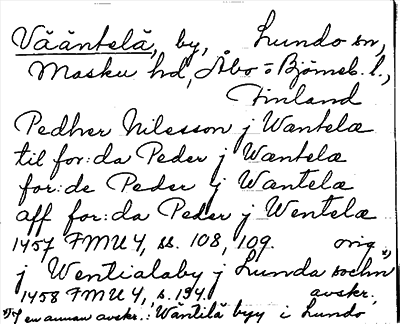 Vääntelä, by, Lundo sn,
Masku hd, Åbo = Björneb. l.,
Finland
Pedher Nilesson j Wantelæ
til for:da Peder j Wæntelæ
for:de Peder j Wæntelæ
aff for:da Peder j Wentelæ
1457 FMU 4, ss. 108, 109. orig.
j Wentialaby j Lunda sochn 1)
1458 FMU 4, s. 134. avskr.
1) I en annan avskr.: Wäntilä byy i Lundo